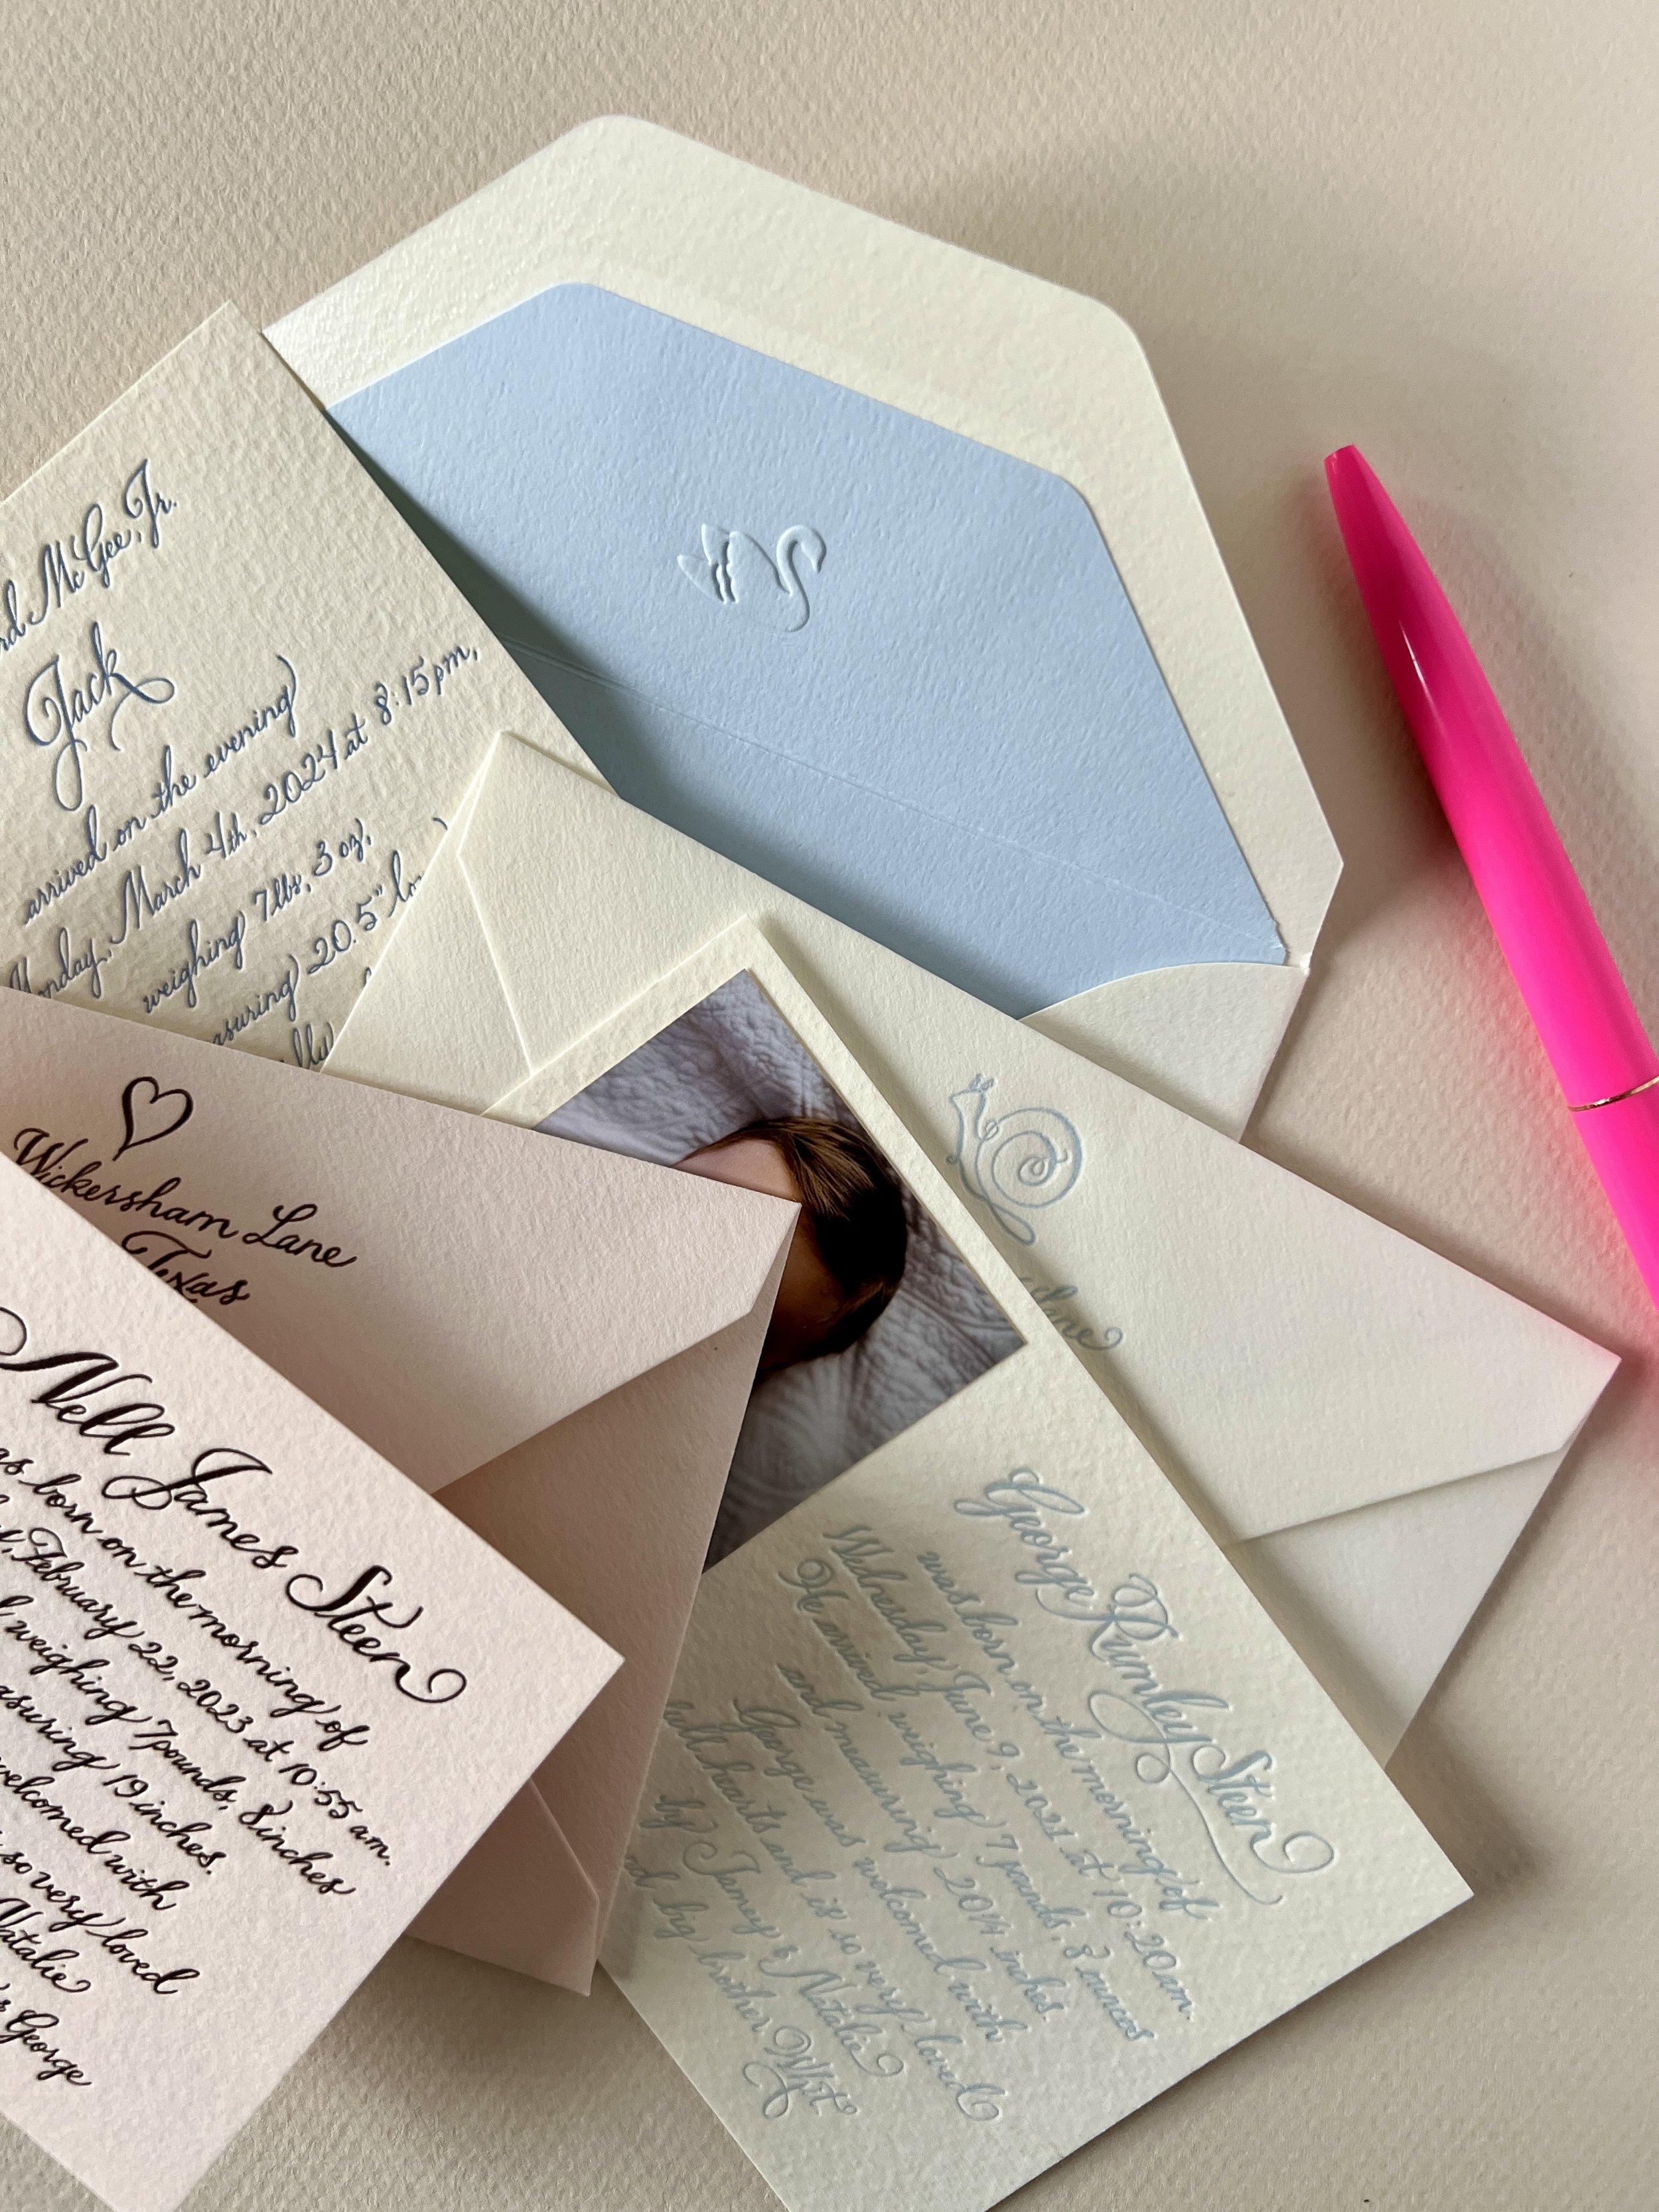 McGee, Jr.
Jack
arrived on the evening
March 4th, 2024 at 8:15 pm,
weighing 7 lbs, 3 oz,
20.5"
Wickersham Lane
Texas
Nell James Steen
born on the morning of
February 22, 2023 at 10:55 am.
weighing 7 pounds, 8 inches
19 inches.
welcomed with
so very loved
Natalie
George
Lane
George Rumley Steen
was born on the morning of
Wednesday, June 9, 2021 at 10:20 am.
He arrived weighing 7 pounds, 8 ounces
and measuring 20 1/4 inches.
George was welcomed with
hearts and is so very loved
by Jamey & Natalie
big brother Whit